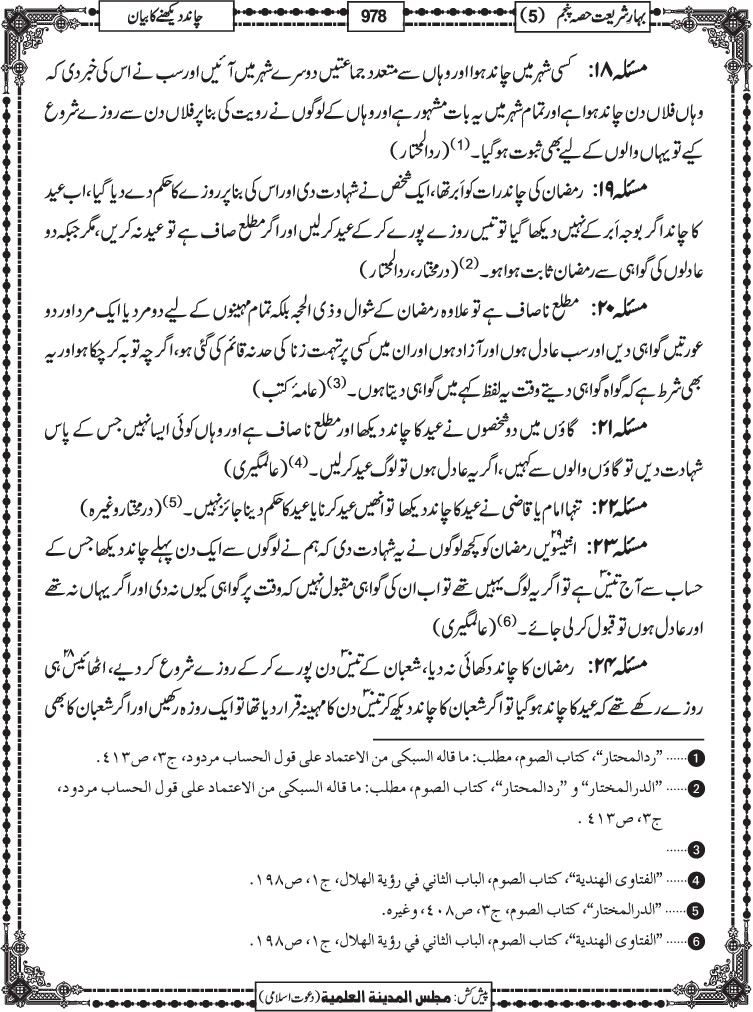 بہار شریعت حصہ پنجم (5)
978
چاند دیکھنے کا بیان
مسئلہ ۱۸: کسی شہر میں چاند ہوا اور وہاں سے متعدد جماعتیں دوسرے شہر میں آئیں اور سب نے اس کی خبر دی کہ
وہاں فلاں دن چاند ہوا ہے اور تمام شہر میں یہ بات مشہور ہے اور وہاں کے لوگوں نے رویت کی بنا پر فلاں دن سے روزے شروع
کیے تو یہاں والوں کے لیے بھی ثبوت ہوگیا۔(1) (ردالمحتار)
مسئلہ ۱۹: رمضان کی چاند رات کو اَبر تھا، ایک شخص نے شہادت دی اور اس کی بنا پر روزے کا حکم دے دیا گیا، اب عید
کا چاند اگر بوجہ اَبر کے نہیں دیکھا گیا تو تیس روزے پورے کر کے عید کرلیں اور اگر مطلع صاف ہے تو عید نہ کریں، مگر جبکہ دو
عادلوں کی گواہی سے رمضان ثابت ہوا ہو۔(2) (درمختار، ردالمحتار)
مسئلہ ۲۰: مطلع ناصاف ہے تو علاوہ رمضان کے شوال و ذی الحجہ بلکہ تمام مہینوں کے لیے دو مرد یا ایک مرد اور دو
عورتیں گواہی دیں اور سب عادل ہوں اور آزاد ہوں اور ان میں کسی پر تہمت زنا کی حد نہ قائم کی گئی ہو، اگرچہ توبہ کر چکا ہو اور یہ
بھی شرط ہے کہ گواہ گواہی دیتے وقت یہ لفظ کہے میں گواہی دیتا ہوں۔(3) (عامۂ کتب)
مسئلہ ۲۱: گاؤں میں دو شخصوں نے عید کا چاند دیکھا اور مطلع ناصاف ہے اور وہاں کوئی ایسا نہیں جس کے پاس
شہادت دیں تو گاؤں والوں سے کہیں، اگر یہ عادل ہوں تو لوگ عید کرلیں۔(4) (عالمگیری)
مسئلہ ۲۲: تنہا امام یا قاضی نے عید کا چاند دیکھا تو انھیں عید کرنا یا عید کا حکم دینا جائز نہیں۔(5) (درمختار وغیرہ)
مسئلہ ۲۳: انتیسویں۲۹ رمضان کو کچھ لوگوں نے یہ شہادت دی کہ ہم نے لوگوں سے ایک دن پہلے چاند دیکھا جس کے
حساب سے آج تیس۳۰ ہے تو اگر یہ لوگ یہیں تھے تو اب ان کی گواہی مقبول نہیں کہ وقت پر گواہی کیوں نہ دی اور اگر یہاں نہ تھے
اور عادل ہوں تو قبول کرلی جائے۔(6) (عالمگیری)
مسئلہ ۲۴: رمضان کا چاند دکھائی نہ دیا، شعبان کے تیس۳۰ دن پورے کر کے روزے شروع کر دیے، اٹھائیس۲۸ ہی
روزے رکھے تھے کہ عید کا چاند ہوگیا تو اگر شعبان کا چاند دیکھ کر تیس۳۰ دن کا مہینہ قرار دیا تھا تو ایک روزہ رکھیں اور اگر شعبان کا بھی
1 ...... "ردالمحتار"، کتاب الصوم، مطلب: ما قاله السبكى من الاعتماد على قول الحساب مردود، ج۳، ص۴۱۳.
2 ...... "الدرالمختار" و "ردالمحتار"، كتاب الصوم، مطلب: ما قاله السبكى من الاعتماد على قول الحساب مردود،
ج۳، ص۴۱۳ .
3 ......
4 ...... "الفتاوى الهندية"، كتاب الصوم، الباب الثاني في رؤية الهلال، ج۱، ص۱۹۸.
5 ...... "الدرالمختار"، كتاب الصوم، ج۳، ص۴۰۸، وغيره.
6 ...... "الفتاوى الهندية"، كتاب الصوم، الباب الثاني في رؤية الهلال، ج۱، ص۱۹۸.
پیش کش: مجلس المدينة العلمية (دعوت اسلامی)